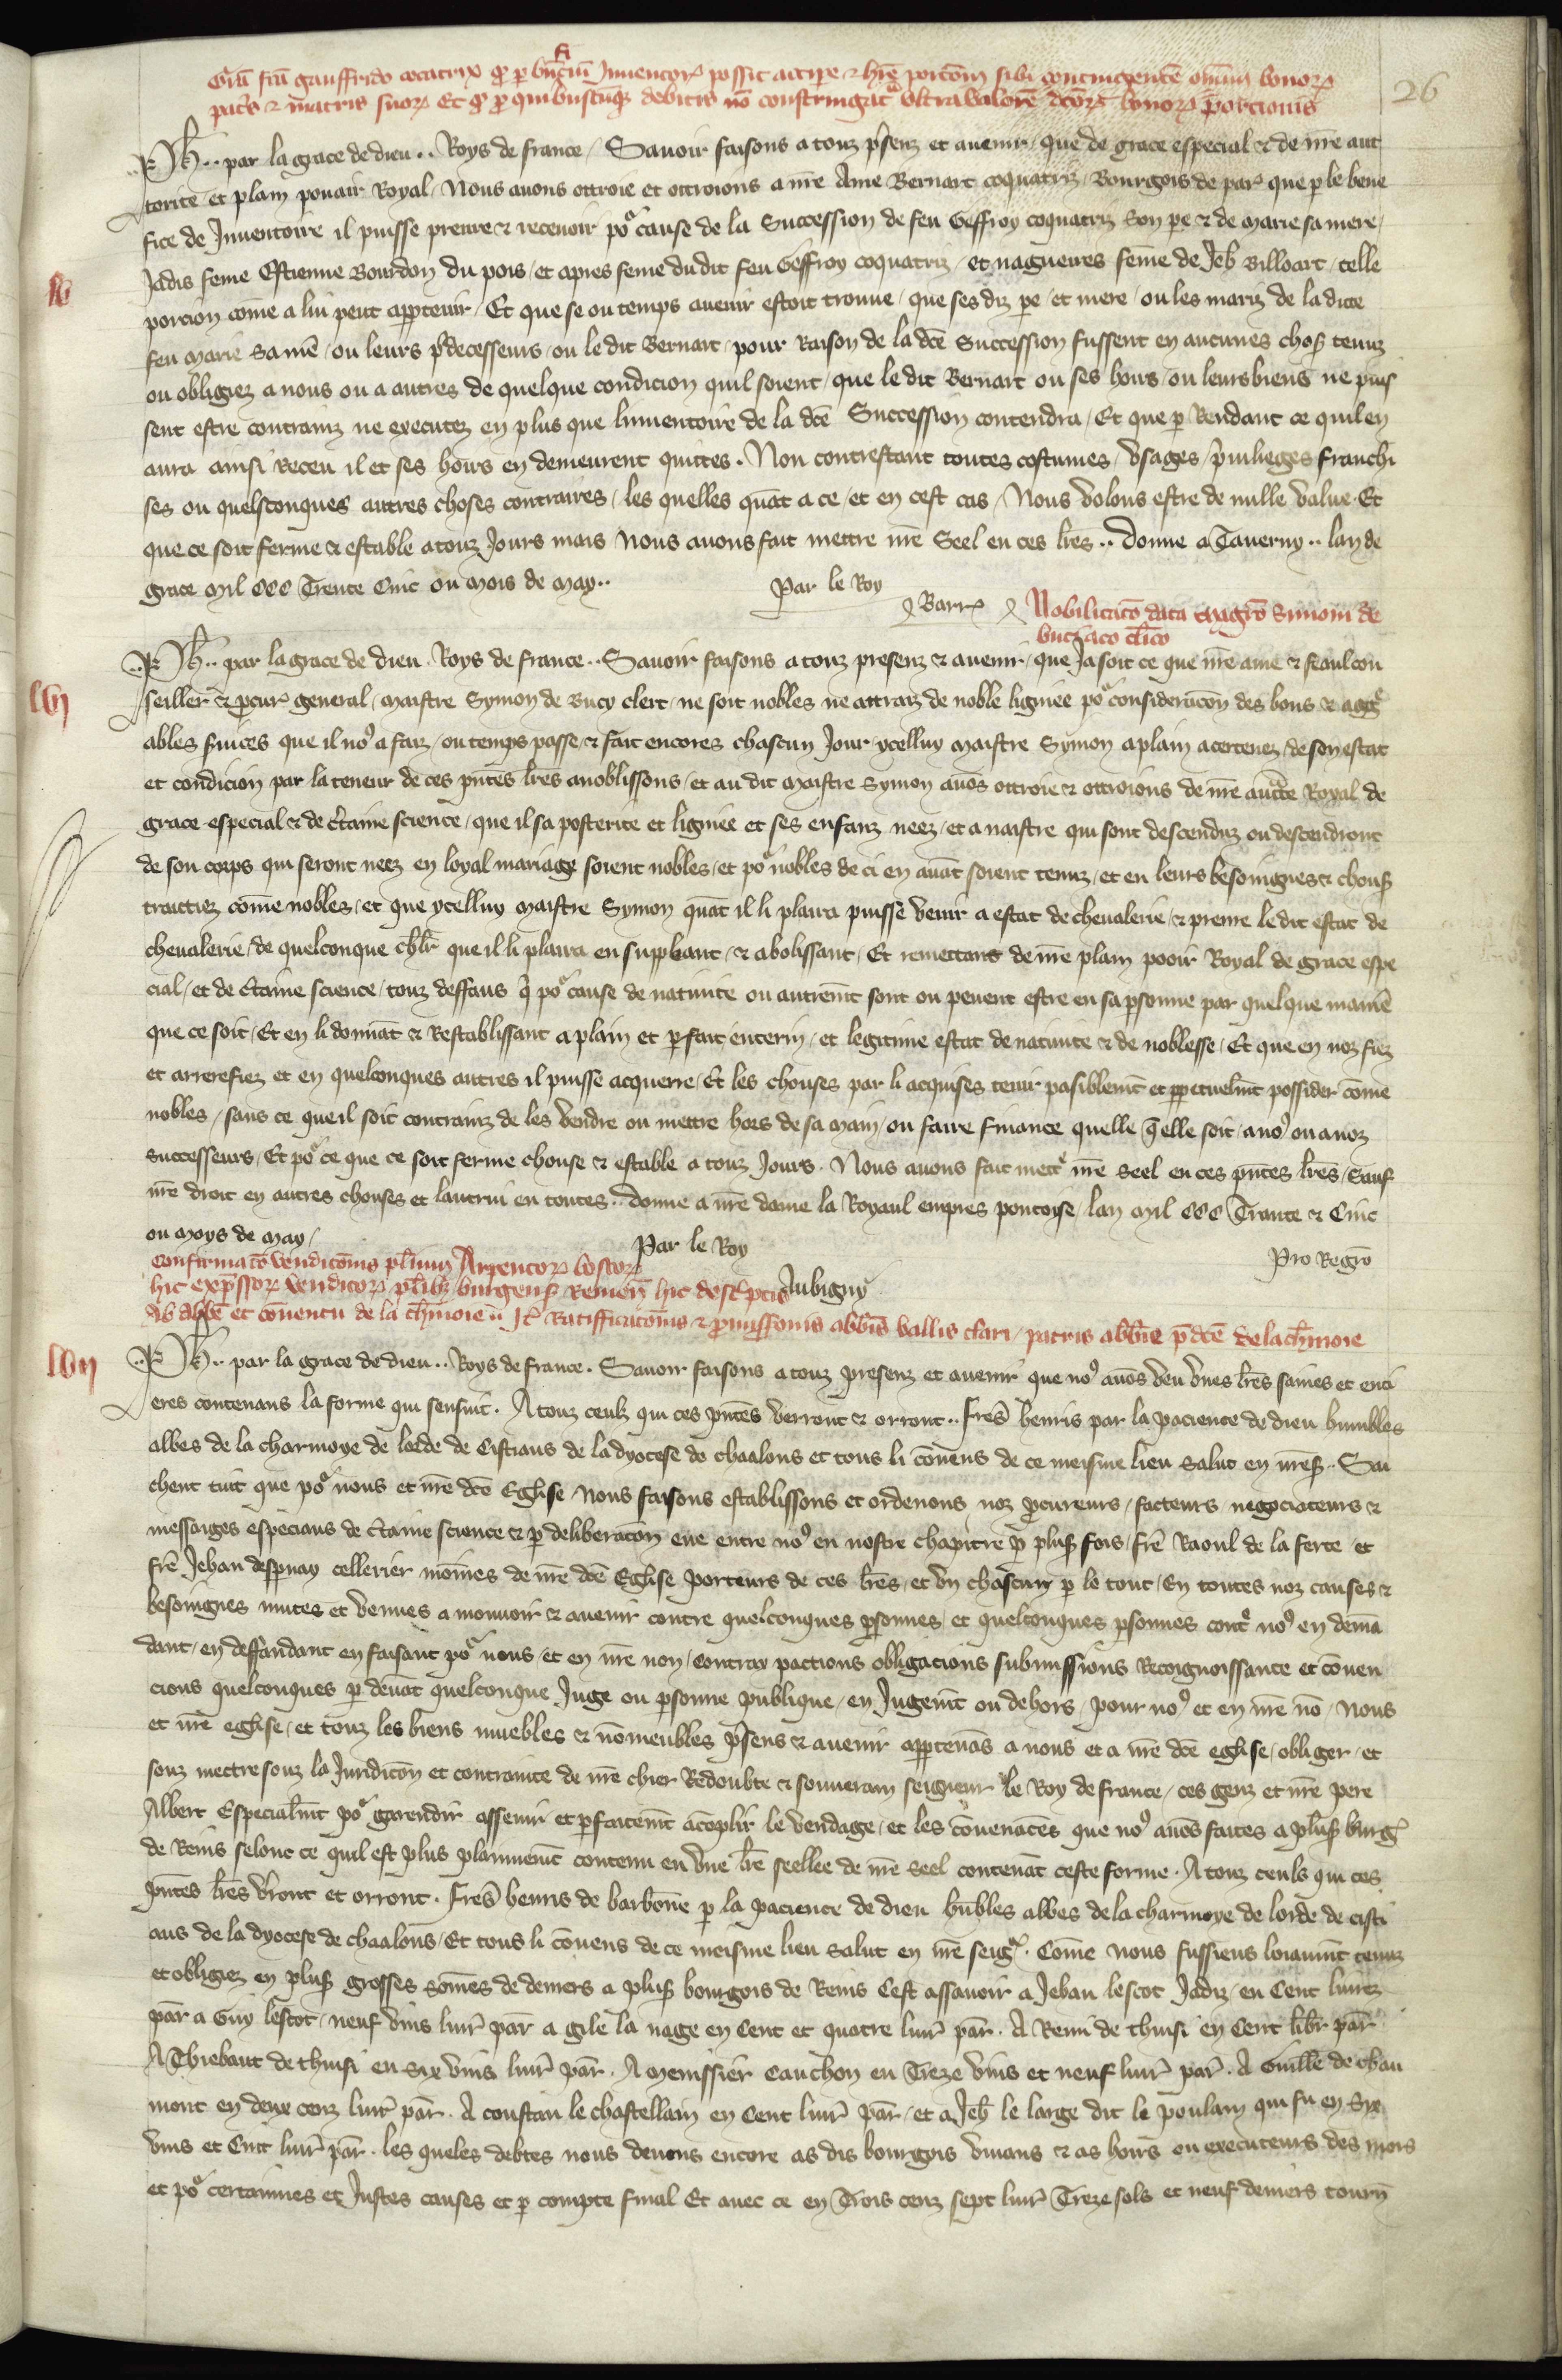 Gra fca gauffrido cocatrix qd p bnficiu Inventor possit accipe & hre porcom sibi contingente omniu bonor
26
patris & matris suor Et qd p quibuscuq debitis no constringat ultra valore dcor bonor porcionis
Ph.. par la grace de dieu.. Roys de france / Savoir faisons a touz psenz et avenir / que de grace especial & de nre auc
torite et plain povair Royal / Nous avons ottroie et ottroions a nre Ame Bernart coquatriz / Bourgois de par que p le bene
fice de Inventoire il puisse prenre & recevoir por cause de la Succession de feu Geffroy coquatriz son pe & de Marie sa mere /
Jadis feme Estienne Bourdon du pois / et apres feme du dit feu Geffroy coquatriz / et nagueires feme de Jeh Billoart / telle
lv
porcion come a lui peut apptenir / Et que se ou temps avenir estoit trouve / que ses diz pe / et mere / ou les mariz de la dicte
feu Marie sa me / ou leurs pdecesseurs / ou le dit Bernart / pour Raison de la dce Succession fussent en aucunes chos tenuz
ou obligiez a nous ou a autres de quelque condicion quil soient / que le dit Bernart ou ses hoirs / ou leurs biens ne puis
sent estre contrainz ne executez en plus que linventoire de la dce Succession contendra / Et que p Rendant ce quil en
aura ainsi Receu il et ses hoirs en demeurent quittes. Non contrestant toutes costumes / usages / privileges franchi
ses ou quelsconques autres choses contraires / les quelles quat a ce / et en cest cas / Nous volons estre de nulle value. Et
que ce soit ferme & estable a touz Jours mais Nous avons fait mettre nre Seel en ces lres.. donne a Taverny.. lan de
grace mil ccc Trente Cinc ou mois de may..
Par le Roy
Barr
Nobilitaco data magro Simoni de
buciaco clico
Ph.. par la grace de dieu. Roys de france.. Savoir faisons a touz presenz & avenir / que Ja soit ce que nre ame & feaul con
lvj
seiller & pcur general / maistre Symon de Bucy clerc / ne soit nobles ne attraiz de noble ligniee por consideracon des bons & aggre
ables svices que il no9 a faiz / ou temps passe / & fait encores chascun Jour / ycelluy maistre Symon a plain acertenez / de son estat
et condicion par la teneur de ces pntes lres anoblissons / et au dit maistre Symon avos ottroie & ottroions de nre aucte Royal de
grace especial & de ctaine science / que il sa posterite et ligniee et ses enfanz neez / et a naistre qui sont descenduz ou descendront
de son corps qui seront neez en loyal mariage soient nobles / et por nobles de ci en avat soient tenuz / et en leurs besoingnes & chous
traittiez come nobles / et que ycelluy maistre Symon quat il li plaira puisse venir a estat de chevalerie / & prenre le dit estat de
chevalerie / de quelconque chlr que il li plaira en suppleant / & abolissant / Et remettant de nre plain pooir Royal de grace espe
cial / et de ctaine science / touz deffaus q por cause de nativite ou autremt sont ou pevent estre en sa psonne par quelque manie
que ce soit / Et en li donnat & Restablissant a plain et pfait enterin / et legitime estat de nativite & de noblesse / Et que en noz fiez
et arrerefiez et en quelconques autres il puisse acquerre / Et les chouses par li acquises tenir pasiblemt et ppetuelmt possider come
nobles / sans ce que il soit contrainz de les vendre ou mettre hors de sa main / ou faire finance quelle q elle soit / a no9 ou a noz
successeurs / Et por ce que ce soit ferme chouse & estable a touz Jours. Nous avons fait mettr nre seel en ces pntes lres / Sauf
nre droit en autres chouses et lautrui en toutes.. donne a nre dame la Royaul empres pontoyse / lan mil ccc Trante & Cinc
ou moys de may /
Par le Roy
Pro Regro
Confirmaco vendicois plium Arpentor boscor
hic expssor venditor plibz burgens Remen hic descptis
Aubigny
Ab Abbe et coventu de la chmoie Jt Ratifficacois & pmissionis abbis vallis clari / patris abbie pdce de la chmoie
lvij
Ph.. par la grace de dieu.. Roys de france. Savoir faisons a touz presenz et avenir que no9 avos veu unes lres saines et enti
eres contenans la forme qui sensuit. A touz ceulz qui ces pntes verront & orront.. Fres henris par la pacience de dieu humbles
abbes de la charmoye de lorde de Cistiaus de la dyocese de chaalons et tous li covens de ce meisme lieu salut en nres.. Sai
chent tuit que por nous et nre dce Eglise / Nous faisons establissons et ordenons noz pcureurs / facteurs negociateurs &
messaiges especiaus de ctaine science & p deliberacon eue entre no9 en nostre chapitre p plus fois / fre Raoul de la ferte et
fre Jehan despnay cellerier moines de nre dce Eglise porteurs de ces lres / et un chascun p le tout / En toutes noz causes &
besoingnes mutes et venues a mouvoir & avenir contre quelconques psonnes / et quelconques psonnes contr no9 en dema
dant / en deffandant en faisant por nous / et en nre non / Contrax pactions obligacions submissions Recoignoissance et coven
cions quelconques p devat quelconque Juge ou psonne publique / en Jugemt ou dehors / pour no9 et en nre no / Nous
et nre eglise / et touz les biens muebles & no meubles psens & avenir apptenas a nous et a nre dce eglise / obliger / et
souz mettre souz la Juridicon et contrainte de nre chier Redoubte & souverain seigneur le Roy de france / ces genz et nre pere
Albert Especialmt por garendir assevir et pfaitemt acoplir le vendage / et les covenaces que no9 avos faites a plus burg
de Reins selonc ce quil est plus plainnemt contenu en une lre seellee de nre seel contenat ceste forme. A touz ceuls qui ces
pntes lres vront et orront. Fres henris de barbone p la pacience de dieu hubles abbes de la charmoye de lorde de cisti
aus de la dyocese de chaalons / Et tous li covens de ce meisme lieu salut en nre seigr. Come nous fussiens loiaumt tenuz
et obligiez en plus grosses somes de deniers a plus bourgois de Reins Cest assavoir a Jehan lescot Jadiz / en Cent livrez
par a Guy lescot / neuf vins livr par a gile la nage en Cent et quatre livr par. A Remi de thuisi en Cent libr par
A Thiebaut de thuisi en Six vins livr par. A Menissier Cauchon en Treze vins et neuf livr par. A Guille de chau
mont en deux cenz livr par. A constan le chastellain en Cent livr par / et a Jeh le large dit le poulain qui fu en Six
vins et Cinc livr par. les queles debtes nous devons encore as dis bourgois vivans & as hoirs ou executeurs des mors
et por certainnes et Justes causes et p compte final Et avec ce en Trois cenz sept livr Treze sols et neuf deniers tourn